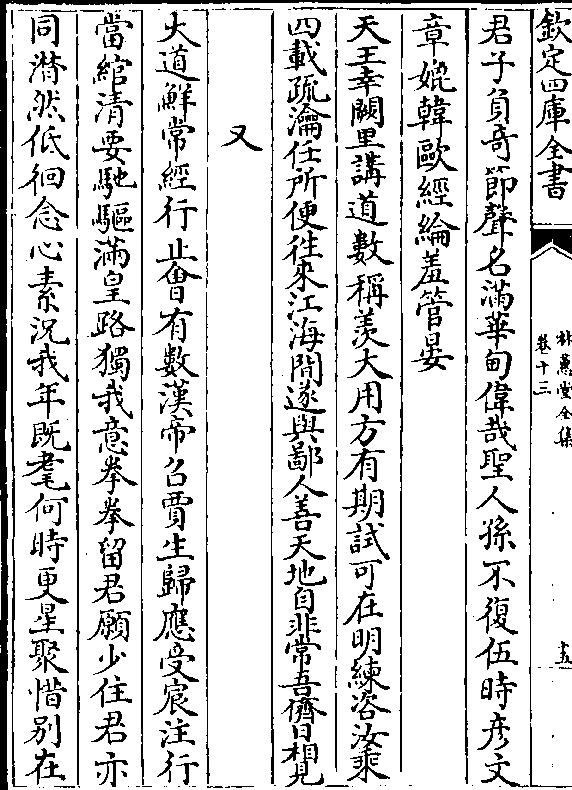 欽定四庫全書
林蕙堂全集
卷十三
十五
君子負奇節聲名滿華甸偉哉聖人孫不復伍時彦文
章媲韓歐經綸羞管晏
天王幸闕里講道數稱羨大用方有期試可在明練咨汝乘
四載疏瀹任所便徃來江海間遂與鄙人善天地自非常吾儕日相見
又
大道鮮常經行止㑹有數漢帝召賈生歸應受宸注行
當綰清要馳驅滿皇路獨我意拳拳留君願少住君亦
同潸然低徊念心素況我年既耄何時更星聚惜别在